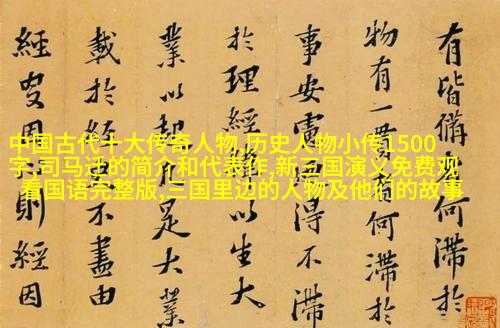 中国古代十大传奇人物,历史人物小传1500
字,司马迁的简介和代表作,新三国演义免费观
看国语完整版,三国里边的人物及他们的故事
有皆備何滯於
物有一何滯於
事安慮得不滯
於理經以生大
業以足大業
載於不盡由
經因則經因